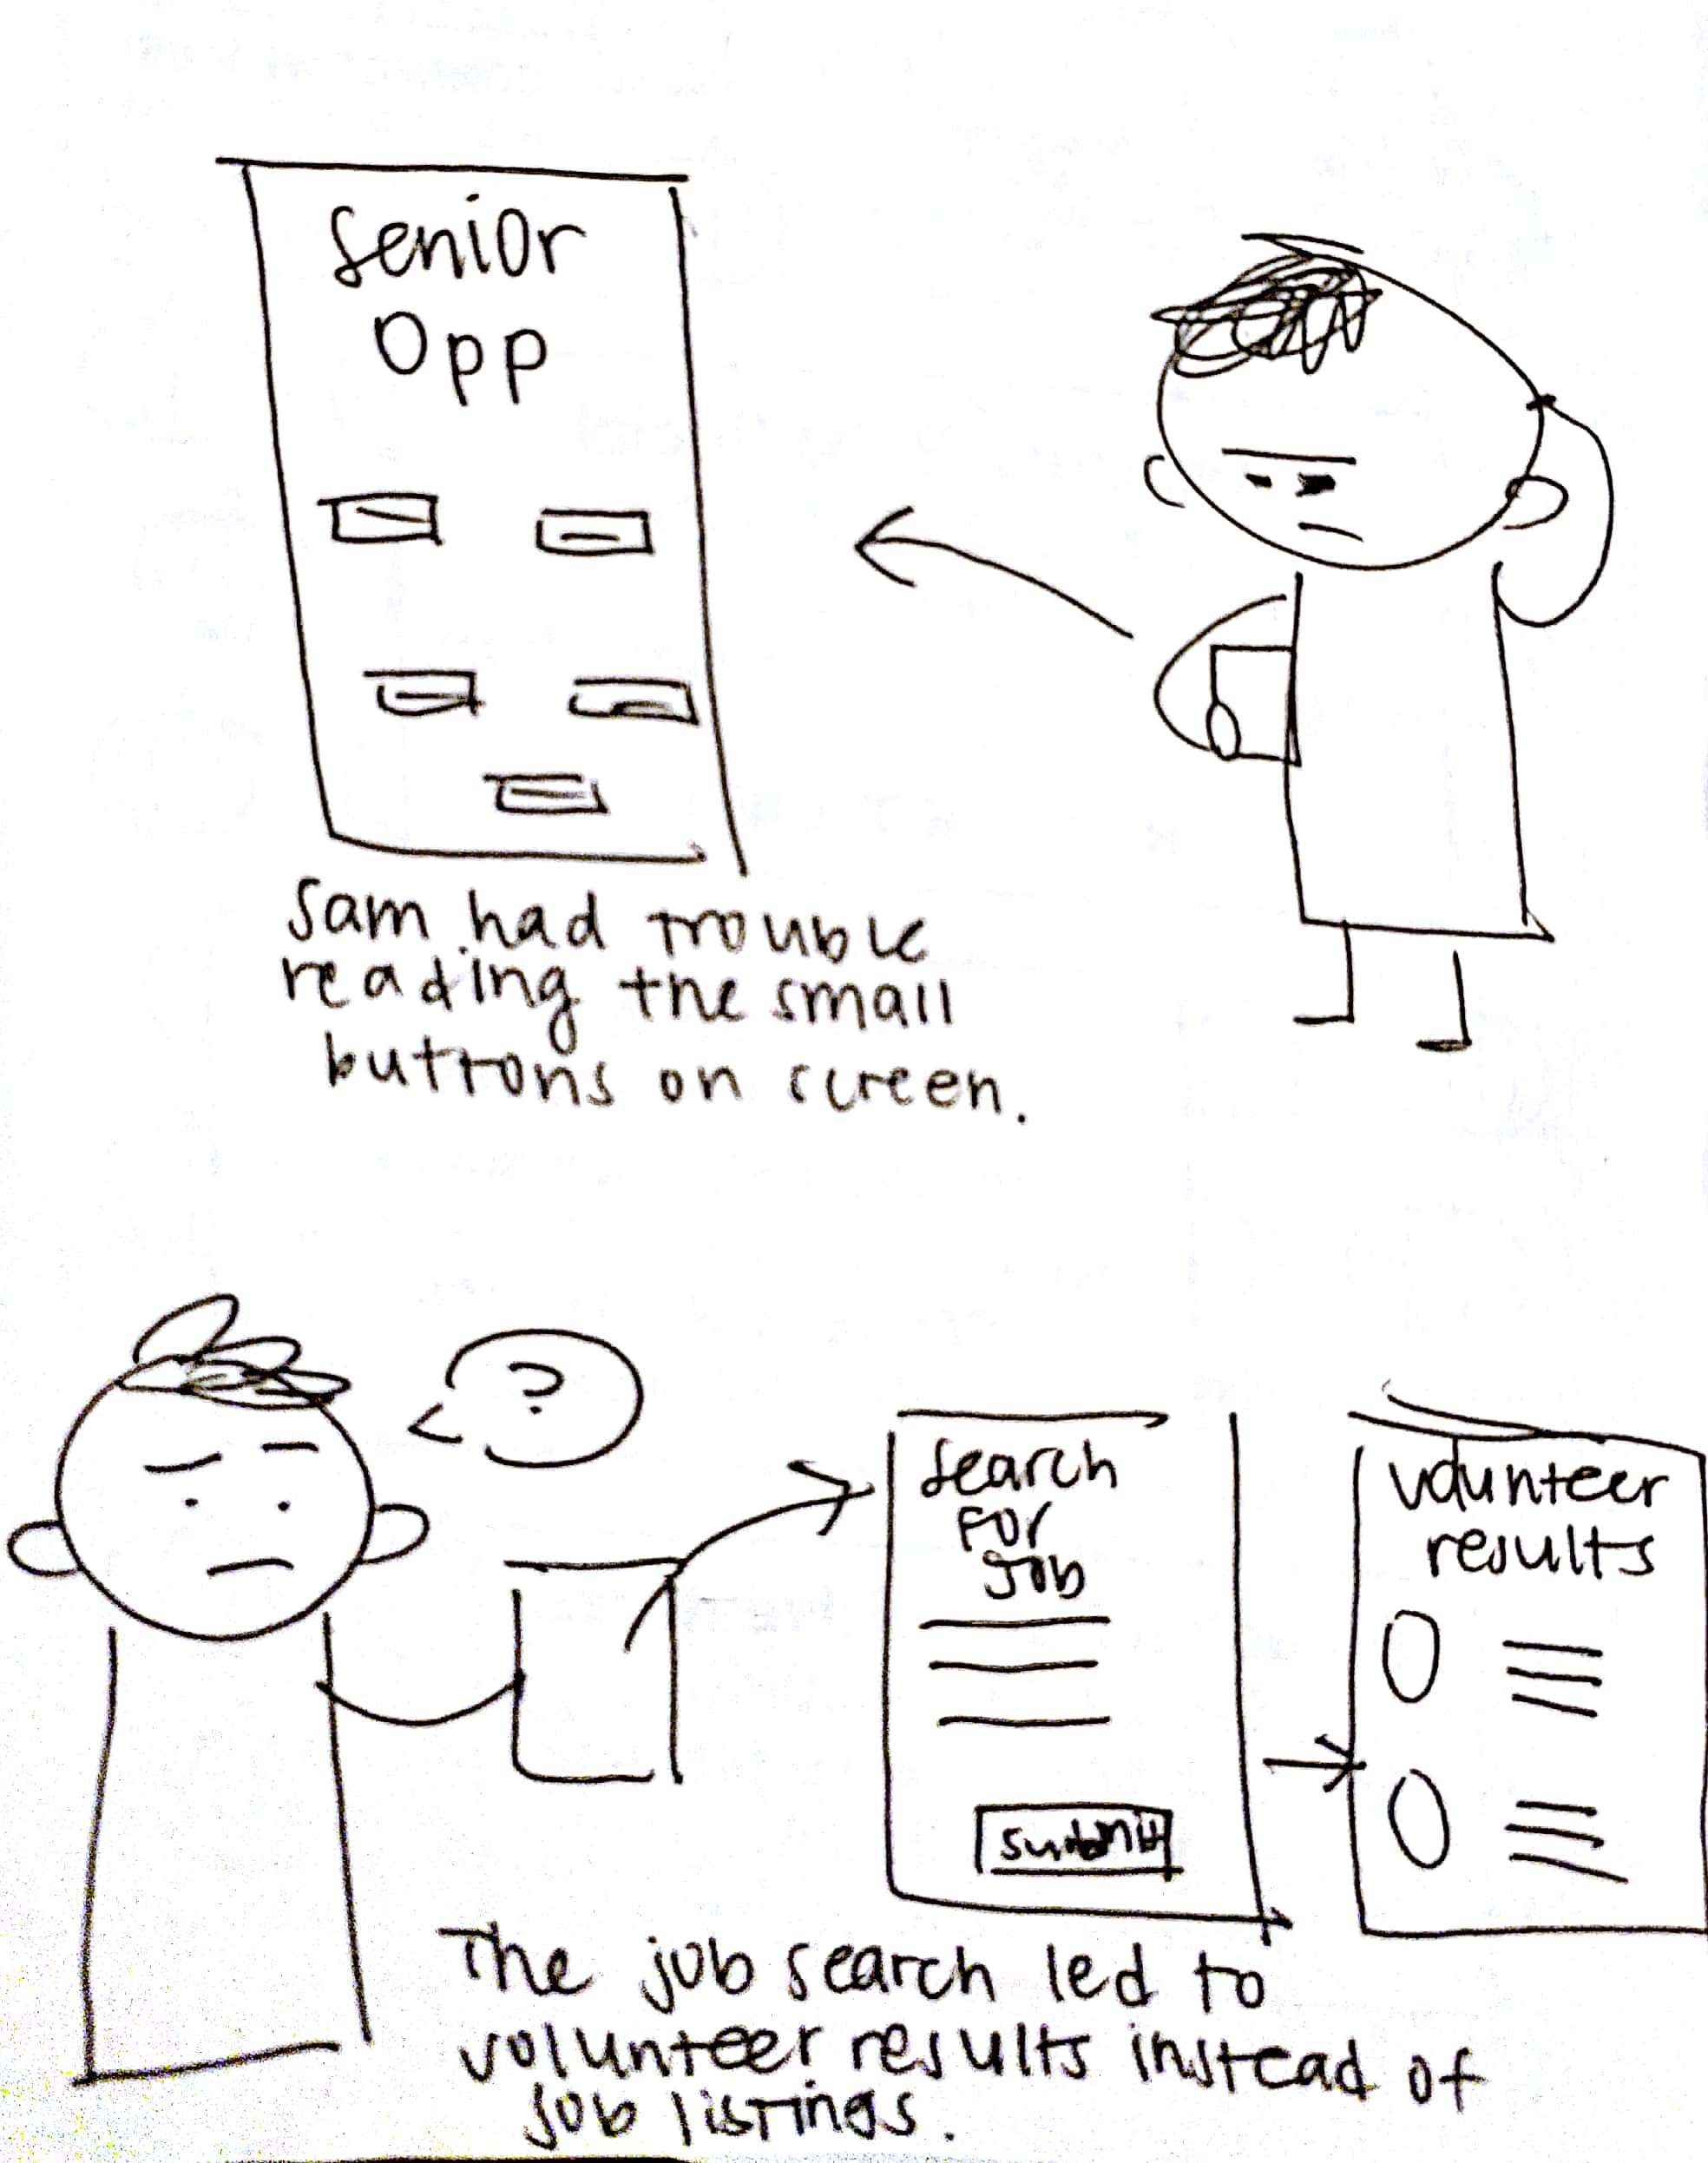 Senior
Opp
Sam had trouble
reading the small
buttons on screen.
?
search
For
Job
submit
volunteer
results
The job search led to
volunteer results instead of
job listings.